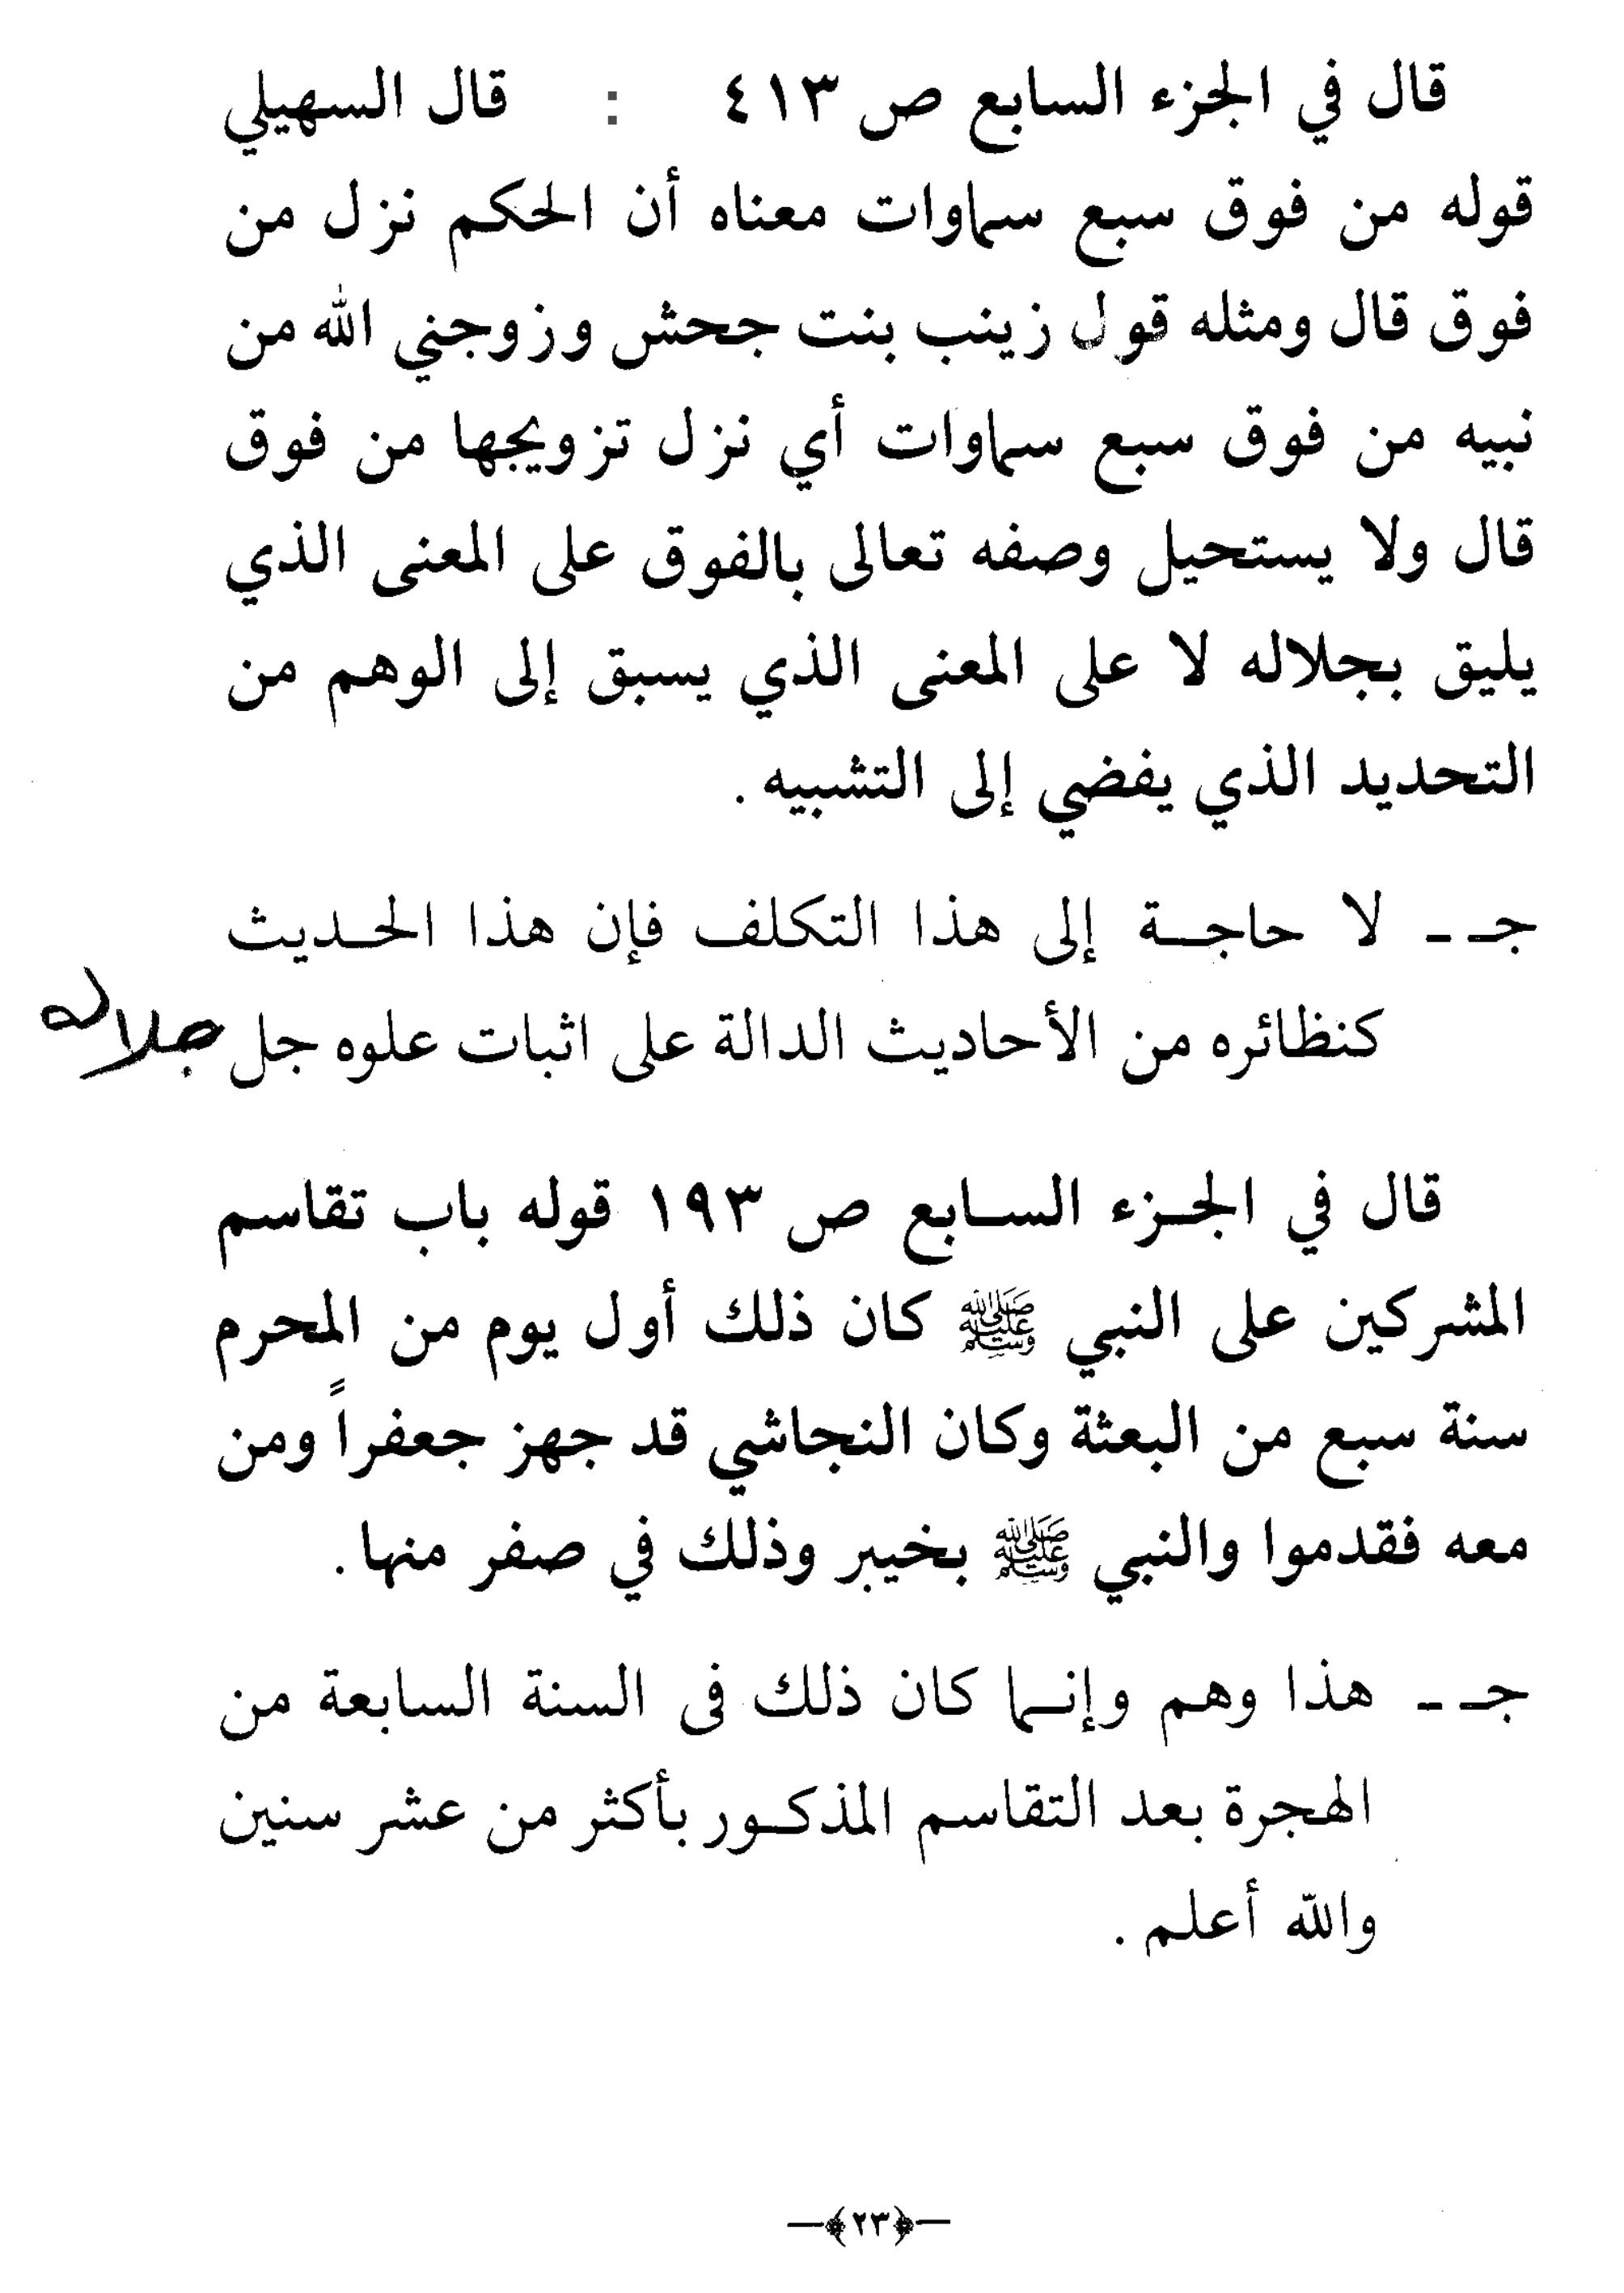 قال في الجزء السابع ص ٤١٣ : قال السهيلي
قوله من فوق سبع سماوات معناه أن الحكم نزل من
فوق قال ومثله قول زينب بنت جحش وزوجني الله من
نبيه من فوق سبع سماوات أي نزل تزويجها من فوق
قال ولا يستحيل وصفه تعالى بالفوق على المعنى الذي
يليق بجلاله لا على المعنى الذي يسبق إلى الوهم من
التحديد الذي يفضي إلى التشبيه .
جـ ـ لا حاجـة إلى هذا التكلف فإن هذا الحـديث
كنظائره من الأحاديث الدالة على اثبات علوه جل جلاله
قال في الجـزء السـابع ص ١٩٣ قوله باب تقاسم
المشركين على النبي ﷺ كان ذلك أول يوم من المحرم
سنة سبع من البعثة وكان النجاشي قد جهز جعفراً ومن
معه فقدموا والنبي ﷺ بخيبر وذلك في صفر منها .
جـ ـ هذا وهم وإنـما كان ذلك فى السنة السابعة من
الهجرة بعد التقاسم المذكـور بأكثر من عشر سنين
والله أعلم .
—﴿٢٣﴾—